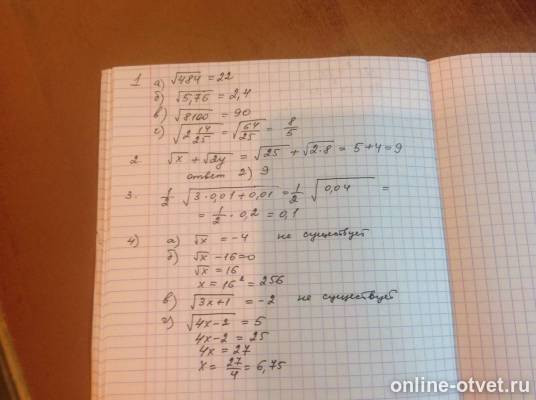 1 а) √484 = 22
б) √5,76 = 2,4
в) √8100 = 90
с) √2 14/25 = √64/25 = 8/5
2. √x + √2y = √25 + √2·8 = 5+4=9
ответ 2) 9
3. 1/2 √3·0,01+0,01 = 1/2 √0,04 =
= 1/2 · 0,2 = 0,1
4) а) √x = -4 не существует
б) √x -16=0
√x = 16
x = 16² = 256
в) √3x+1 = -2 не существует
г) √4x-2 = 5
4x-2 = 25
4x = 27
x = 27/4 = 6,75
online-otvet.ru